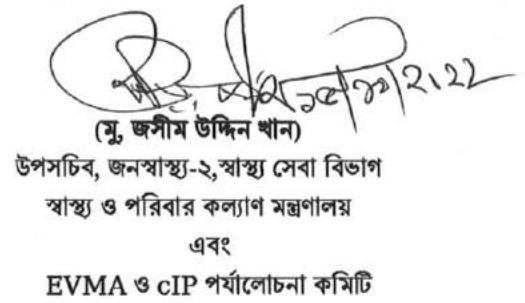 (মু, জসীম উদ্দিন খান)
উপসচিব, জনস্বাস্থ্য-২,স্বাস্থ্য সেবা বিভাগ
স্বাস্থ্য ও পরিবার কল্যাণ মন্ত্রণালয়
এবং
EVMA ও cIP পর্যালোচনা কমিটি